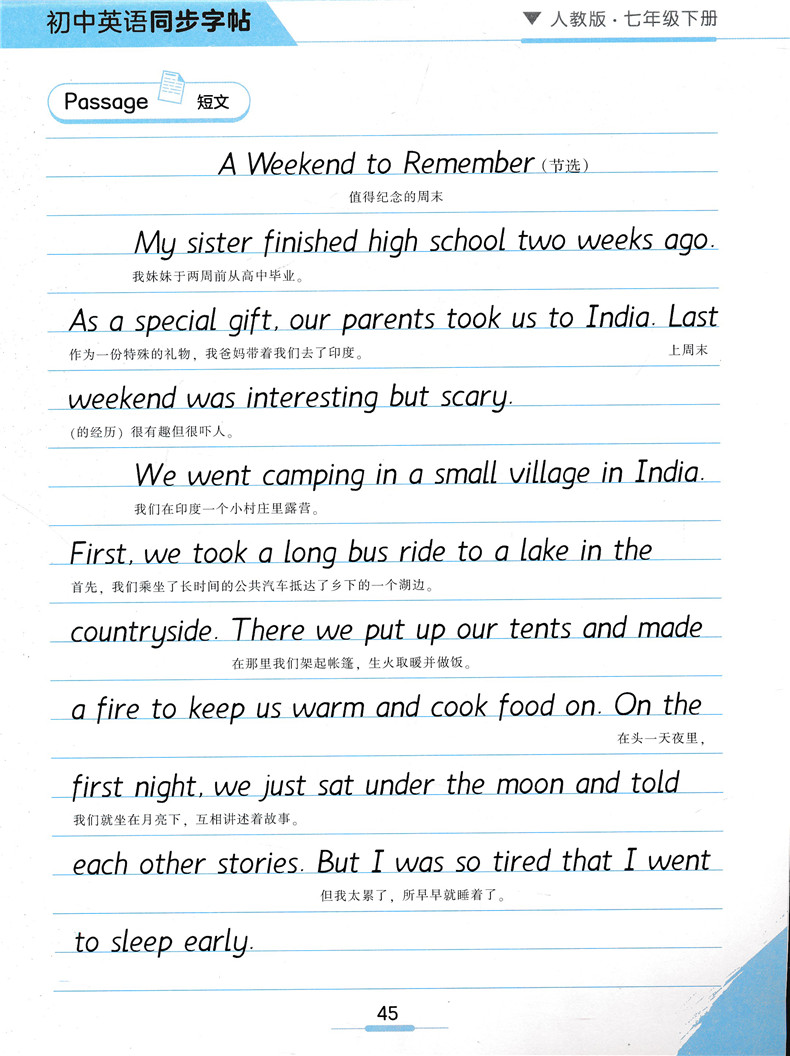 初中英语同步字帖
▼ 人教版·七年级下册
Passage 短文
A Weekend to Remember (节选)
值得纪念的周末
My sister finished high school two weeks ago.
我妹妹于两周前从高中毕业。
As a special gift, our parents took us to India. Last
作为一份特殊的礼物，我爸妈带着我们去了印度。 上周末
weekend was interesting but scary.
(的经历) 很有趣但很吓人。
We went camping in a small village in India.
我们在印度一个小村庄里露营。
First, we took a long bus ride to a lake in the
首先，我们乘坐了长时间的公共汽车抵达了乡下的一个湖边。
countryside. There we put up our tents and made
在那里我们架起帐篷，生火取暖并做饭。
a fire to keep us warm and cook food on. On the
在头一天夜里，
first night, we just sat under the moon and told
我们就坐在月亮下，互相讲述着故事。
each other stories. But I was so tired that I went
但我太累了，所早早就睡着了。
to sleep early.
45